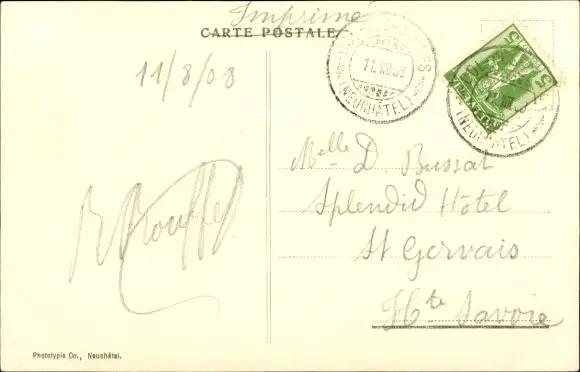 Imprimé
CARTE POSTALE
11/8/08
11. VIII. 08
(NEUCHÂTEL)
(NEUCHÂTEL)
Melle D. Bussat
Splendid Hôtel
St Gervais
Hte Savoie
Phototypie Co., Neuchâtel.